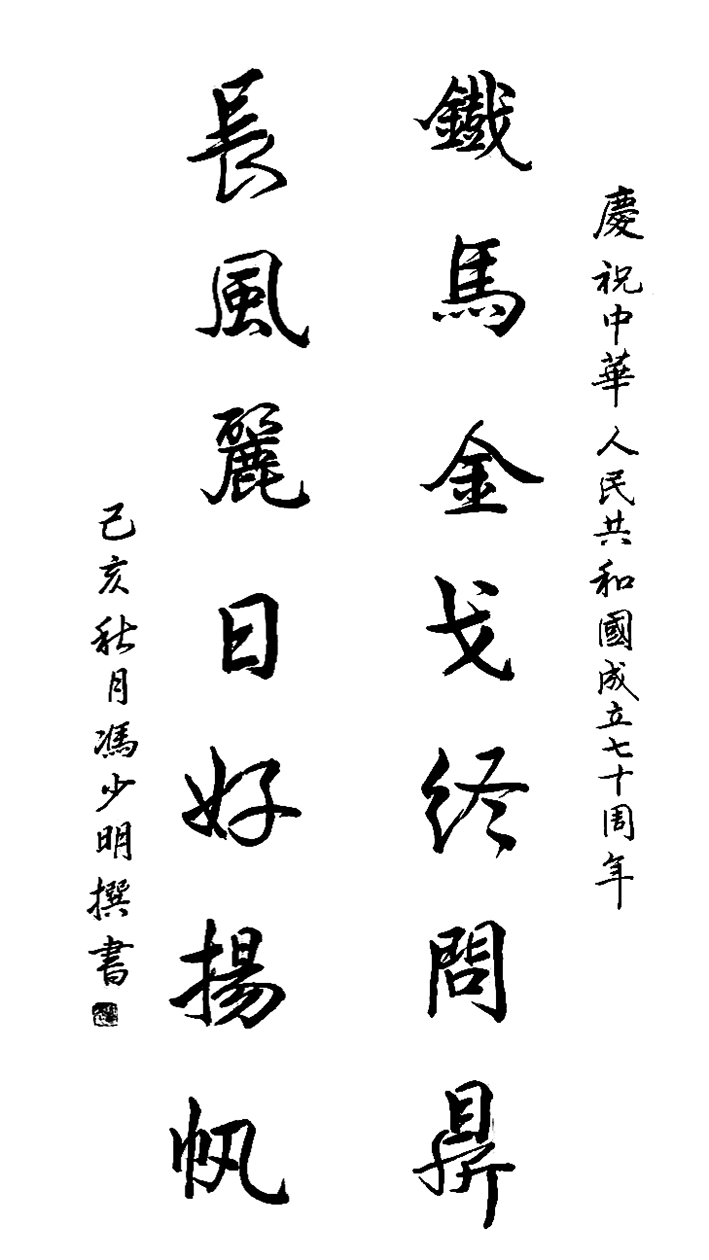 慶祝中華人民共和國成立七十周年
鐵馬金戈終問鼎
長風麗日好揚帆
己亥秋月馮少明撰書